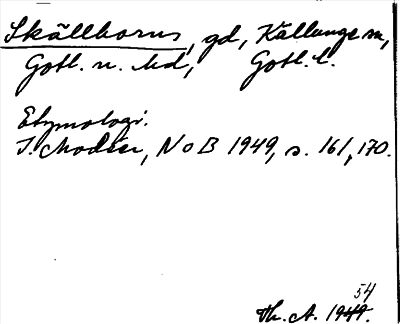 Skällhorns, gd, Källunge sn,
Gotl. n. hd, Gotl. l.
Etymologi.
I. Modéer, NoB 1949, s. 161, 170.
54
Th. A. 1949.